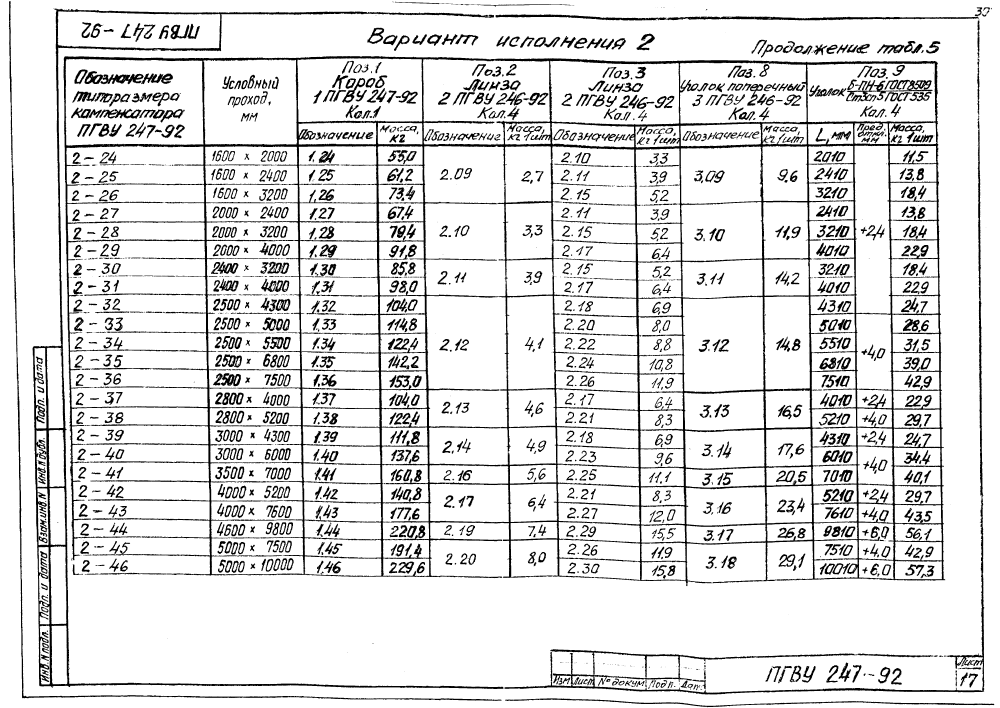 30
ПГВУ 247-92
Вариант исполнения 2
Продолжение табл.5
Обозначение типоразмера компенсатора ПГВУ 247-92 | Условный проход, мм | Поз.1 Короб 1 ПГВУ 247-92 Кол.1 | Поз.2 Линза 2 ПГВУ 246-92 Кол.4 | Поз.3 Линза 2 ПГВУ 246-92 Кол.4 | Поз.8 Уголок поперечный 3 ПГВУ 246-92 Кол.4 | Поз.9 Уголок Б-ПН-6 ГОСТ 8509 Ст3сп5 ГОСТ 535 Кол.4
Обозначение | Масса, кг | Обозначение | Масса, кг 1 шт | Обозначение | Масса, кг 1 шт | Обозначение | Масса, кг 1 шт | L, мм | Пред. откл. мм | Масса, кг 1 шт
2-24 1600 x 2000 1.24 55,0 2.10 3,3 2010 11,5
2-25 1600 x 2400 1.25 61,2 2.09 2,7 2.11 3,9 3.09 9,6 2410 13,8
2-26 1600 x 3200 1.26 73,4 2.15 5,2 3210 18,4
2-27 2000 x 2400 1.27 67,4 2.11 3,9 2410 13,8
2-28 2000 x 3200 1.28 79,4 2.10 3,3 2.15 5,2 3.10 11,9 3210 +2,4 18,4
2-29 2000 x 4000 1.29 91,8 2.17 6,4 4010 22,9
2-30 2400 x 3200 1.30 85,8 2.11 3,9 2.15 5,2 3.11 14,2 3210 18,4
2-31 2400 x 4000 1.31 98,0 2.17 6,4 4010 22,9
2-32 2500 x 4300 1.32 104,0 2.18 6,9 4310 24,7
2-33 2500 x 5000 1.33 114,8 2.20 8,0 5010 28,6
2-34 2500 x 5500 1.34 122,4 2.12 4,1 2.22 8,8 3.12 14,8 5510 +4,0 31,5
2-35 2500 x 6800 1.35 142,2 2.24 10,8 6810 39,0
2-36 2500 x 7500 1.36 153,0 2.26 11,9 7510 42,9
2-37 2800 x 4000 1.37 104,0 2.13 4,6 2.17 6,4 3.13 16,5 4010 +2,4 22,9
2-38 2800 x 5200 1.38 122,4 2.21 8,3 5210 +4,0 29,7
2-39 3000 x 4300 1.39 111,8 2.14 4,9 2.18 6,9 3.14 17,6 4310 +2,4 24,7
2-40 3000 x 6000 1.40 137,6 2.23 9,6 6010 +4,0 34,4
2-41 3500 x 7000 1.41 160,8 2.16 5,6 2.25 11,1 3.15 20,5 7010 40,1
2-42 4000 x 5200 1.42 140,8 2.17 6,4 2.21 8,3 3.16 23,4 5210 +2,4 29,7
2-43 4000 x 7600 1.43 177,6 2.27 12,0 7610 +4,0 43,5
2-44 4600 x 9800 1.44 220,8 2.19 7,4 2.29 15,5 3.17 26,8 9810 +6,0 56,1
2-45 5000 x 7500 1.45 191,4 2.20 8,0 2.26 11,9 3.18 29,1 7510 +4,0 42,9
2-46 5000 x 10000 1.46 229,6 2.30 15,8 10010 +6,0 57,3
Инв.N подл. Подп. и дата Взам.инв.N Инв.N дубл. Подп. и дата
Изм Лист № докум. Подп. Дат.
ПГВУ 247-92
Лист
17